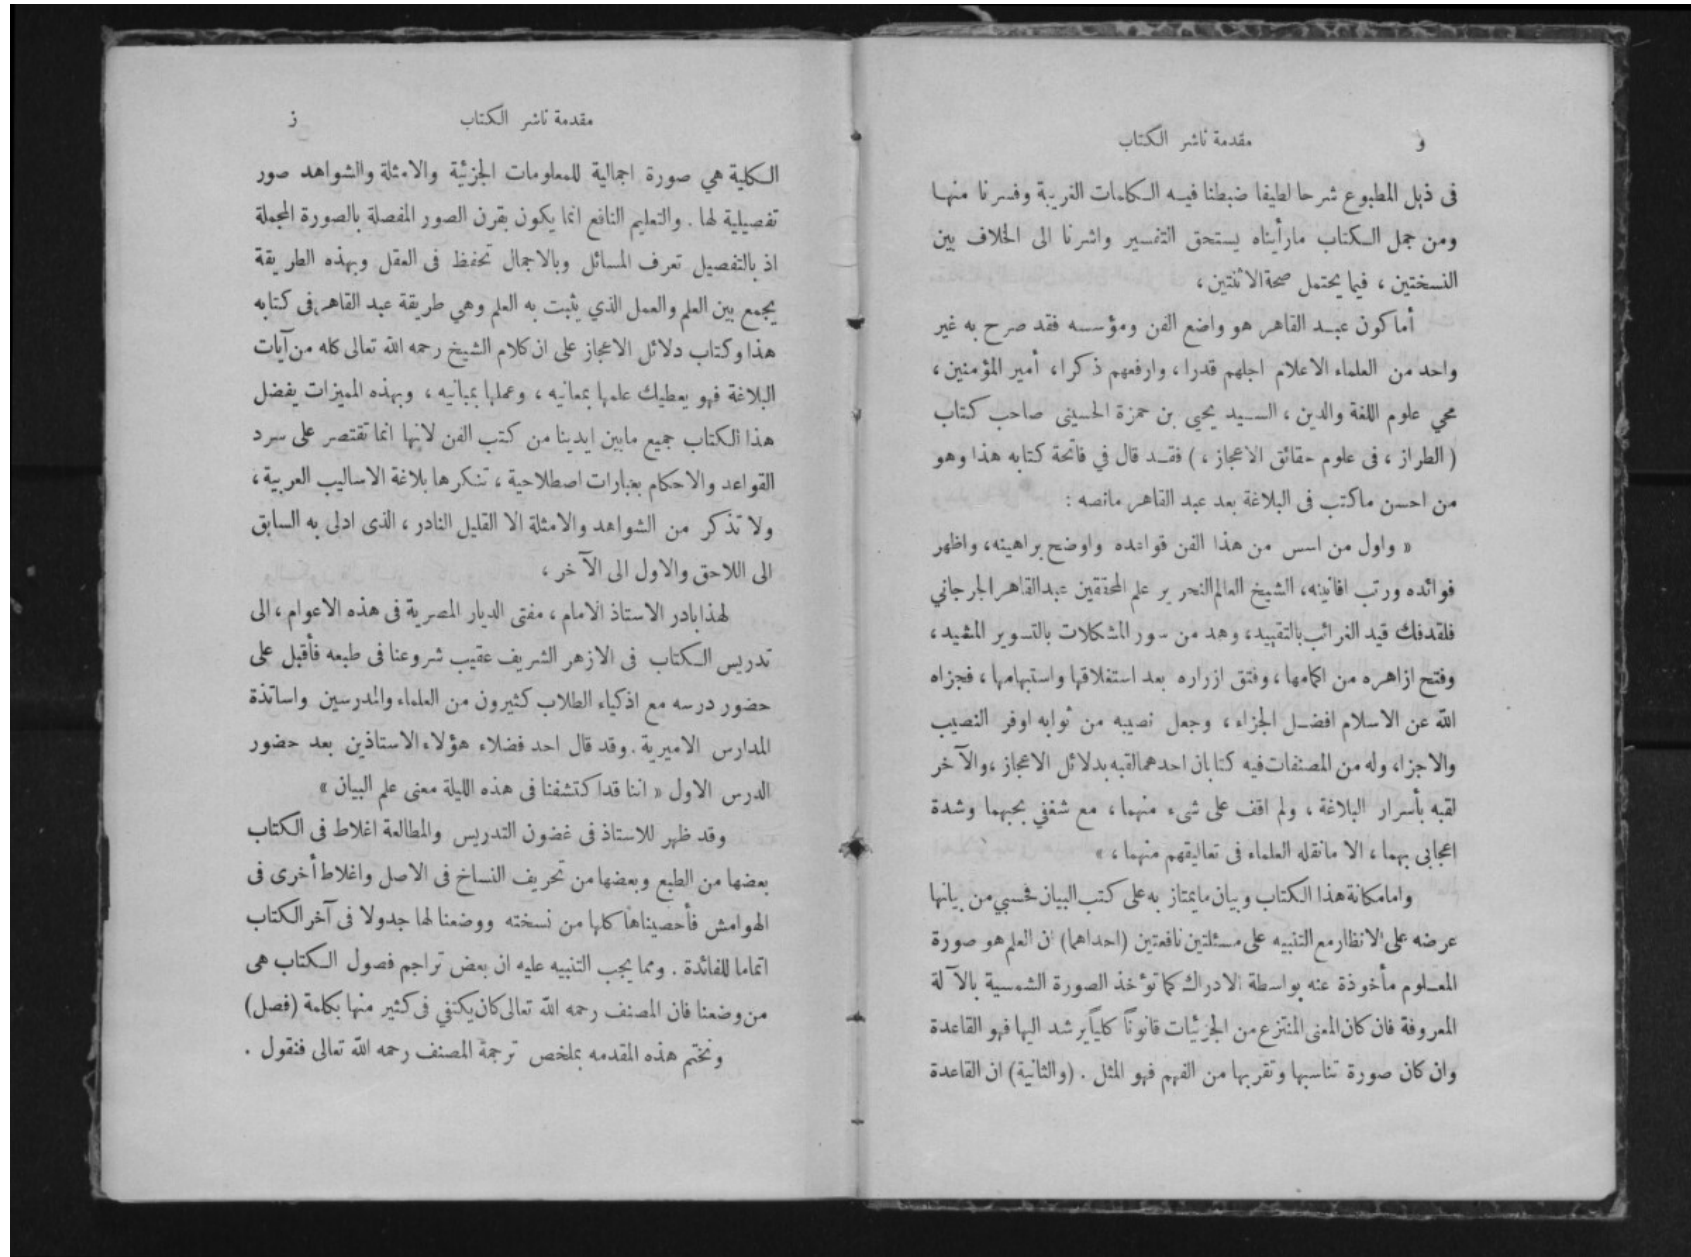 و مقدمة ناشر الكتاب
فى ذيل المطبوع شرحا لطيفا ضبطنا فيه الكلمات الغريبة وفسرنا منها
ومن جمل الكتاب مارأيناه يستحق التفسير واشرنا الى الخلاف بين
النسختين ، فيما يحتمل صحة الاثنتين ،
أما كون عبد القاهر هو واضع الفن ومؤسسه فقد صرح به غير
واحد من العلماء الاعلام اجلهم قدرا ، وارفعهم ذكرا ، أمير المؤمنين ،
محي علوم اللغة والدين ، السيد يحيى بن حمزة الحسينى صاحب كتاب
( الطراز ، فى علوم حقائق الاعجاز ، ) فقد قال في فاتحة كتابه هذا وهو
من احسن ماكتب فى البلاغة بعد عبد القاهر مانصه :
« واول من اسس من هذا الفن قواعده واوضح براهينه ، واظهر
فوائده ورتب افانينه ، الشيخ العالم النحرير علم المحققين عبد القاهر الجرجاني
فلقد فك قيد الغرائب بالتقييد ، وهد من سور المشكلات بالتسوير المشيد ،
وفتح ازاهره من اكمامها ، وفتق ازراره بعد استغلاقها واستبهامها ، فجزاه
الله عن الاسلام افضل الجزاء ، وجعل نصيبه من ثوابه اوفر النصيب
والاجزا ، وله من المصنفات فيه كتابان احدهما لقبه بدلائل الاعجاز ، والآخر
لقبه بأسرار البلاغة ، ولم اقف على شىء منهما ، مع شغفي بحبهما وشدة
اعجابى بهما ، الا مانقله العلماء فى تعاليقهم منهما ، »
واما مكانة هذا الكتاب وبيان ما يمتاز به على كتب البيان فحسبي من بيانها
عرضه على الانظار مع التنبيه على مسئلتين نافعتين (احداهما) ان العلم هو صورة
المعلوم مأخوذة عنه بواسطة الادراك كما تؤخذ الصورة الشمسية بالآلة
المعروفة فان كان المعنى المنتزع من الجزئيات قانوناً كلياً يرشد اليها فهو القاعدة
وان كان صورة تناسبها وتقربها من الفهم فهو المثل . (والثانية) ان القاعدة
مقدمة ناشر الكتاب ز
الكلية هي صورة اجمالية للمعلومات الجزئية والامثلة والشواهد صور
تفصيلية لها . والتعليم النافع انما يكون بقرن الصور المفصلة بالصورة المجملة
اذ بالتفصيل تعرف المسائل وبالاجمال تحفظ فى العقل وبهذه الطريقة
يجمع بين العلم والعمل الذي يثبت به العلم وهي طريقة عبد القاهر فى كتابه
هذا وكتاب دلائل الاعجاز على ان كلام الشيخ رحمه الله تعالى كله من آيات
البلاغة فهو يعطيك علمها بمعانيه ، وعملها بمبانيه ، وبهذه المميزات يفضل
هذا الكتاب جميع مابين ايدينا من كتب الفن لانها انما تقتصر على سرد
القواعد والاحكام بعبارات اصطلاحية ، تنكرها بلاغة الاساليب العربية ،
ولا تذكر من الشواهد والامثلة الا القليل النادر ، الذى ادلى به السابق
الى اللاحق والاول الى الآخر ،
لهذا بادر الاستاذ الامام ، مفتى الديار المصرية فى هذه الاعوام ، الى
تدريس الكتاب فى الازهر الشريف عقيب شروعنا فى طبعه فأقبل على
حضور درسه مع اذكياء الطلاب كثيرون من العلماء والمدرسين واساتذة
المدارس الاميرية . وقد قال احد فضلاء هؤلاء الاستاذين بعد حضور
الدرس الاول « اننا قد اكتشفنا فى هذه الليلة معنى علم البيان »
وقد ظهر للاستاذ فى غضون التدريس والمطالعة اغلاط فى الكتاب
بعضها من الطبع وبعضها من تحريف النساخ فى الاصل واغلاط أخرى فى
الهوامش فأحصيناها كلها من نسخته ووضعنا لها جدولا فى آخر الكتاب
اتماما للفائدة . ومما يجب التنبيه عليه ان بعض تراجم فصول الكتاب هى
من وضعنا فان المصنف رحمه الله تعالى كان يكتفي فى كثير منها بكلمة (فصل)
ونختم هذه المقدمه بملخص ترجمة المصنف رحمه الله تعالى فنقول .